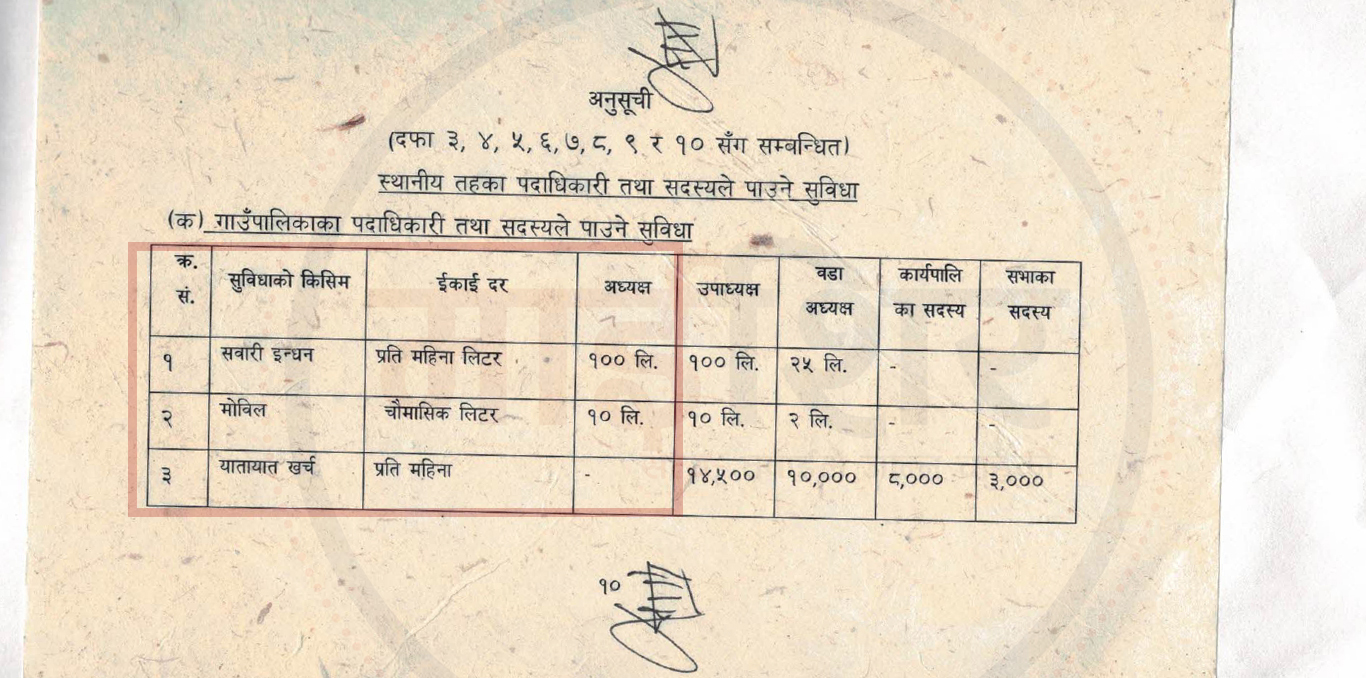 अनुसूची
(दफा ३, ४, ५, ६, ७, ८, ९ र १० सँग सम्बन्धित)
स्थानीय तहका पदाधिकारी तथा सदस्यले पाउने सुविधा
(क) गाउँपालिकाका पदाधिकारी तथा सदस्यले पाउने सुविधा
क्र. सं. सुविधाको किसिम ईकाई दर अध्यक्ष उपाध्यक्ष वडा अध्यक्ष कार्यपालिका सदस्य सभाका सदस्य
१ सवारी इन्धन प्रति महिना लिटर १०० लि. १०० लि. २५ लि. - -
२ मोविल चौमासिक लिटर १० लि. १० लि. २ लि. - -
३ यातायात खर्च प्रति महिना - १४,५०० १०,००० ८,००० ३,०००
१०